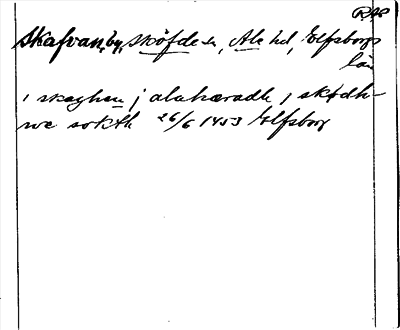 RAP
Skafvan, by, Sköfde sn, Ale hd, Elfsborgs
län
i skaghen j alahæradh j skødh-
we sokth 26/6 1453 Elfsborg